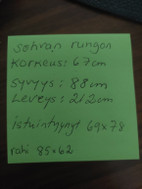 sohvan rungon
korkeus: 67cm
syvyys: 88cm
Leveys: 212cm
istuintyynyt 69x78
rahi 85x62